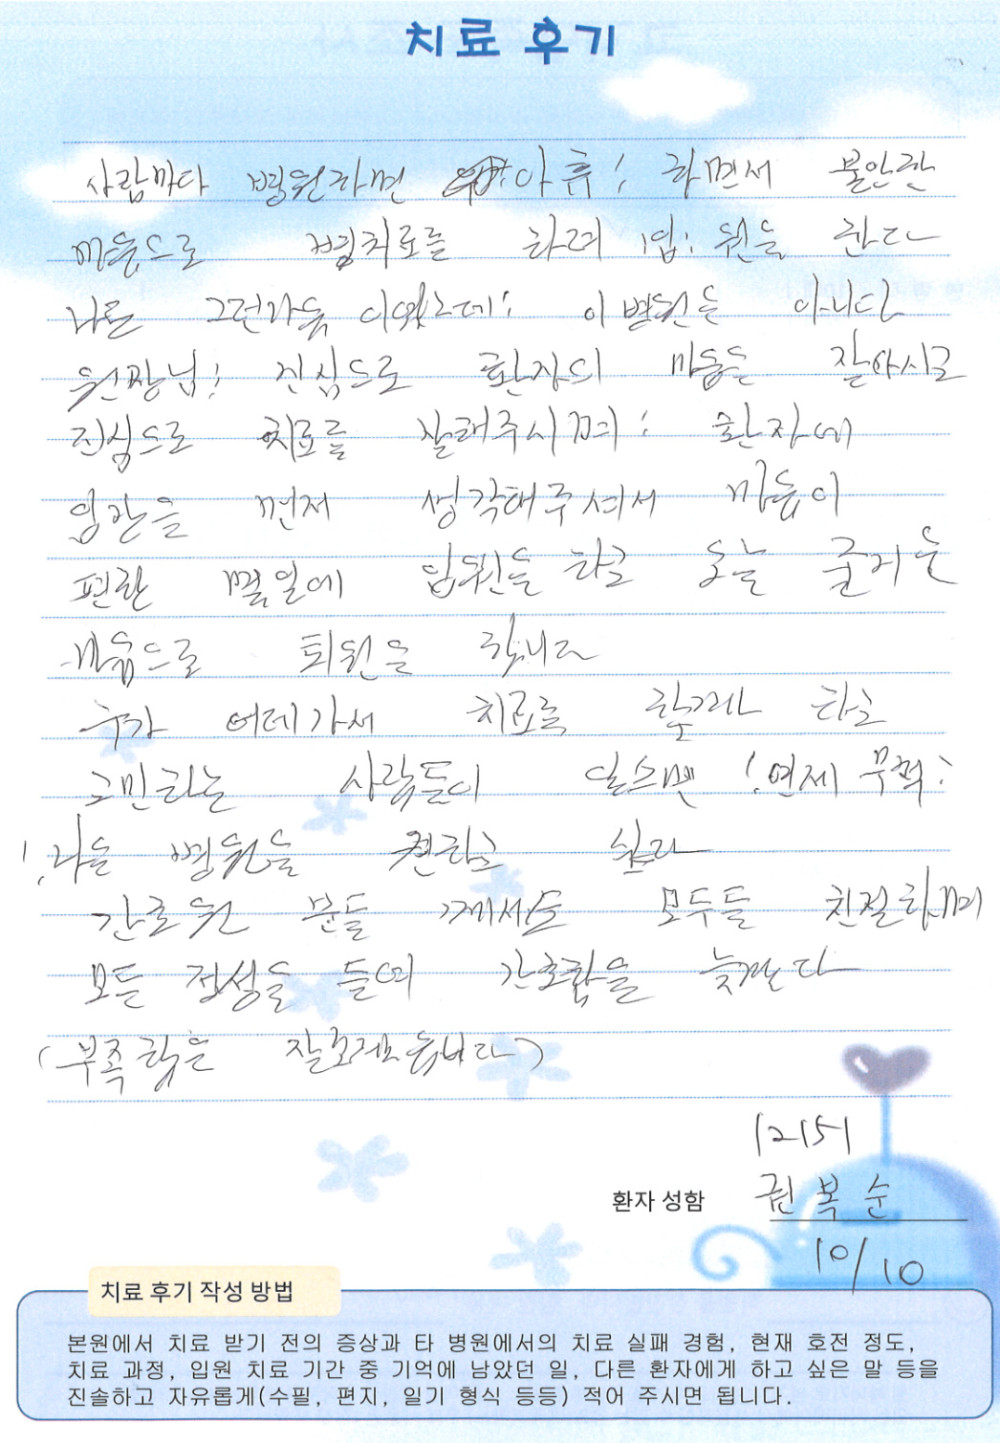 치료 후기
사람마다 병원하면 아휴! 하면서 불안한
마음으로 병치료를 하려 입원을 한다
나는 그런마음 이였는데! 이 병원은 아니다
원장님! 진심으로 환자의 마음을 잘아시고
진심으로 치료를 잘해주시며! 환자에
입장을 먼저 생각해주셔서 마음이
편한 몇일에 입원을 하고 오늘 즐거운
마음으로 퇴원을 합니다
누가 어데가서 치료를 할까 하고
고민하는 사람들이 있스면 ! 언제 무척!
! 나는 병원을 권하고 싶다
간호원 분들 께서도 모두들 친절하며
모든 정성을 들여 간호함을 늦낀다
(부족함은 잘모르겠습니다)
12151
환자 성함 권복순
10/10
치료 후기 작성 방법
본원에서 치료 받기 전의 증상과 타 병원에서의 치료 실패 경험, 현재 호전 정도,
치료 과정, 입원 치료 기간 중 기억에 남았던 일, 다른 환자에게 하고 싶은 말 등을
진솔하고 자유롭게(수필, 편지, 일기 형식 등등) 적어 주시면 됩니다.